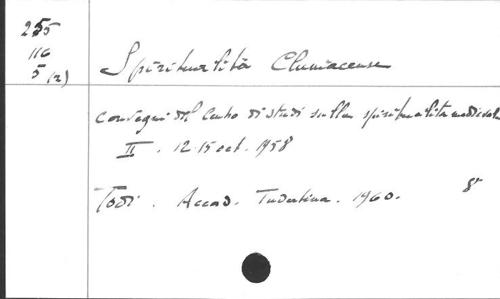 255
116
5 (2)
Spiritualità Cluniacense
Convegni del Centro di studi sulla spiritualità medievale
II. 12-15 oct. 1958
Todi. Accad. Tudertina. 1960. 8°